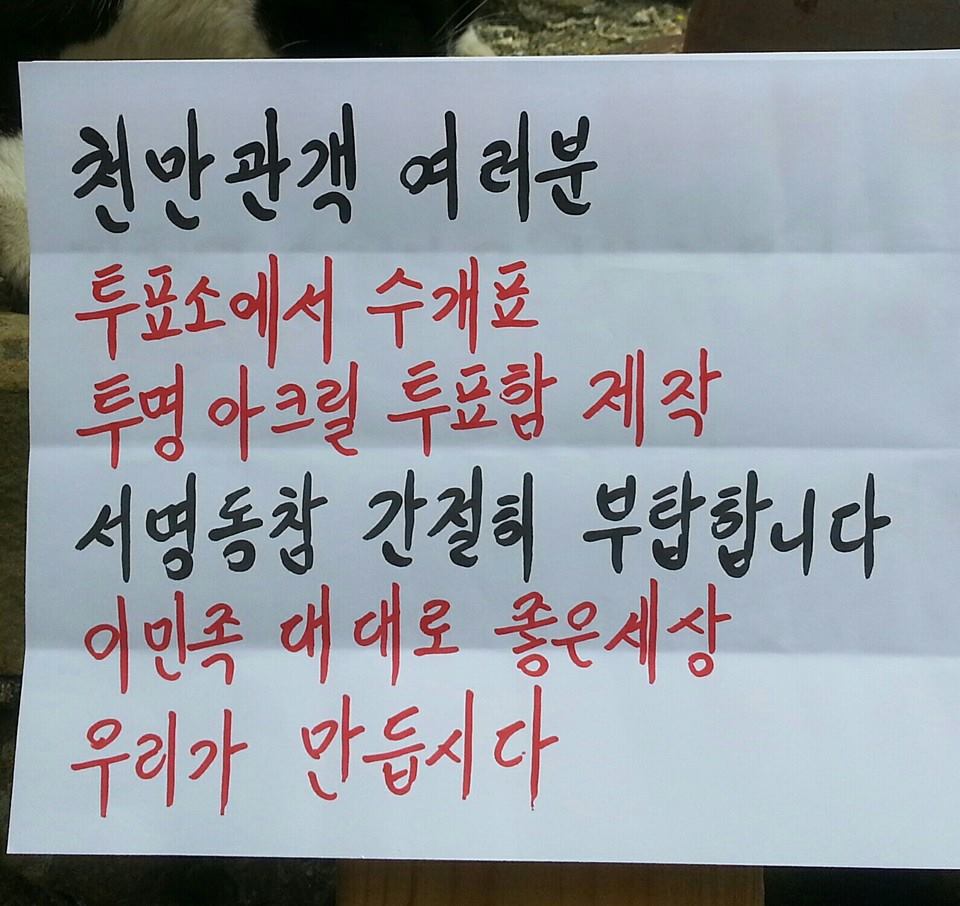 천만관객 여러분
투표소에서 수개표
투명 아크릴 투표함 제작
서명동참 간절히 부탁합니다
이민족 대대로 좋은세상
우리가 만듭시다